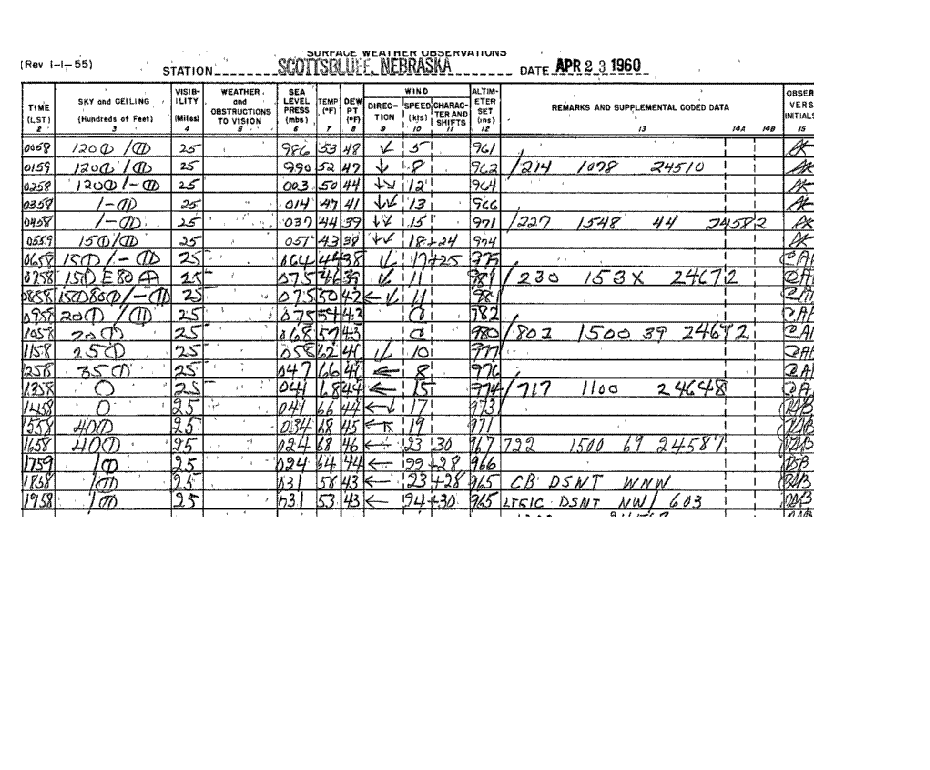 SURFACE WEATHER OBSERVATIONS
(Rev 1-1-55) STATION SCOTTSBLUFF, NEBRASKA DATE APR 23 1960
TIME (LST) 2 SKY and CEILING (Hundreds of Feet) 3 VISIBILITY (Miles) 4 WEATHER and OBSTRUCTIONS TO VISION 5 SEA LEVEL PRESS (mbs) 6 TEMP (°F) 7 DEW PT (°F) 8 WIND DIRECTION 9 SPEED (kts) 10 CHARACTER AND SHIFTS 11 ALTIMETER SET (ins) 12 REMARKS AND SUPPLEMENTAL CODED DATA 13 14A 14B OBSER VERS INITIALS 15
0058 120⦶ /⦶ 25 986 53 48 ↙ 5 961
0159 120⦶ /⦶ 25 990 52 47 ↓ 8 962 /214 1078 24510
0258 120⦶ /-⦷ 25 003 50 44 ↓↙ 12 964
0358 /-⦷ 25 014 47 41 ↓↙ 13 966
0458 /-⦷ 25 037 44 39 ↓↙ 15 971 /227 1548 44 24582
0559 150⦶/⦷ 25 051 43 38 ↓↙ 18+24 974
0658 15⦶ /-⦷ 25 064 44 38 ↓↙ 17+25
0758 15⦶ E80⊕ 25 075 46 39 ↙ 11 981 /230 153X 24672
0858 15⦶80⦶/-⦷ 25 075 50 42 ←↙ 11 981
0958 20⦶ /⦷ 25 075 54 42 0 982
1058 20⦶ 25 068 57 43 0 980 /803 1500 39 24672
1158 25⦶ 25 058 62 41 ↓↙ 10 977
1258 35⦶ 25 047 66 41 ← 8 976
1358 ○ 25 041 68 44 ← 15 974 /717 1100 24648
1458 ○ 25 041 66 44 ←↓ 17 973
1558 40⦶ 25 034 68 45 ←↖ 19 971
1658 40⦶ 25 024 68 46 ← 23 30 967 722 1500 69 24587
1759 /⦶ 25 024 64 44 ← 22+28 966 RSB
1858 /⦷ 25 031 58 43 ← 23+28 965 CB DSNT WNW
1958 /⦷ 25 031 53 43 ← 24+30 965 LTGIC DSNT NW/ 603